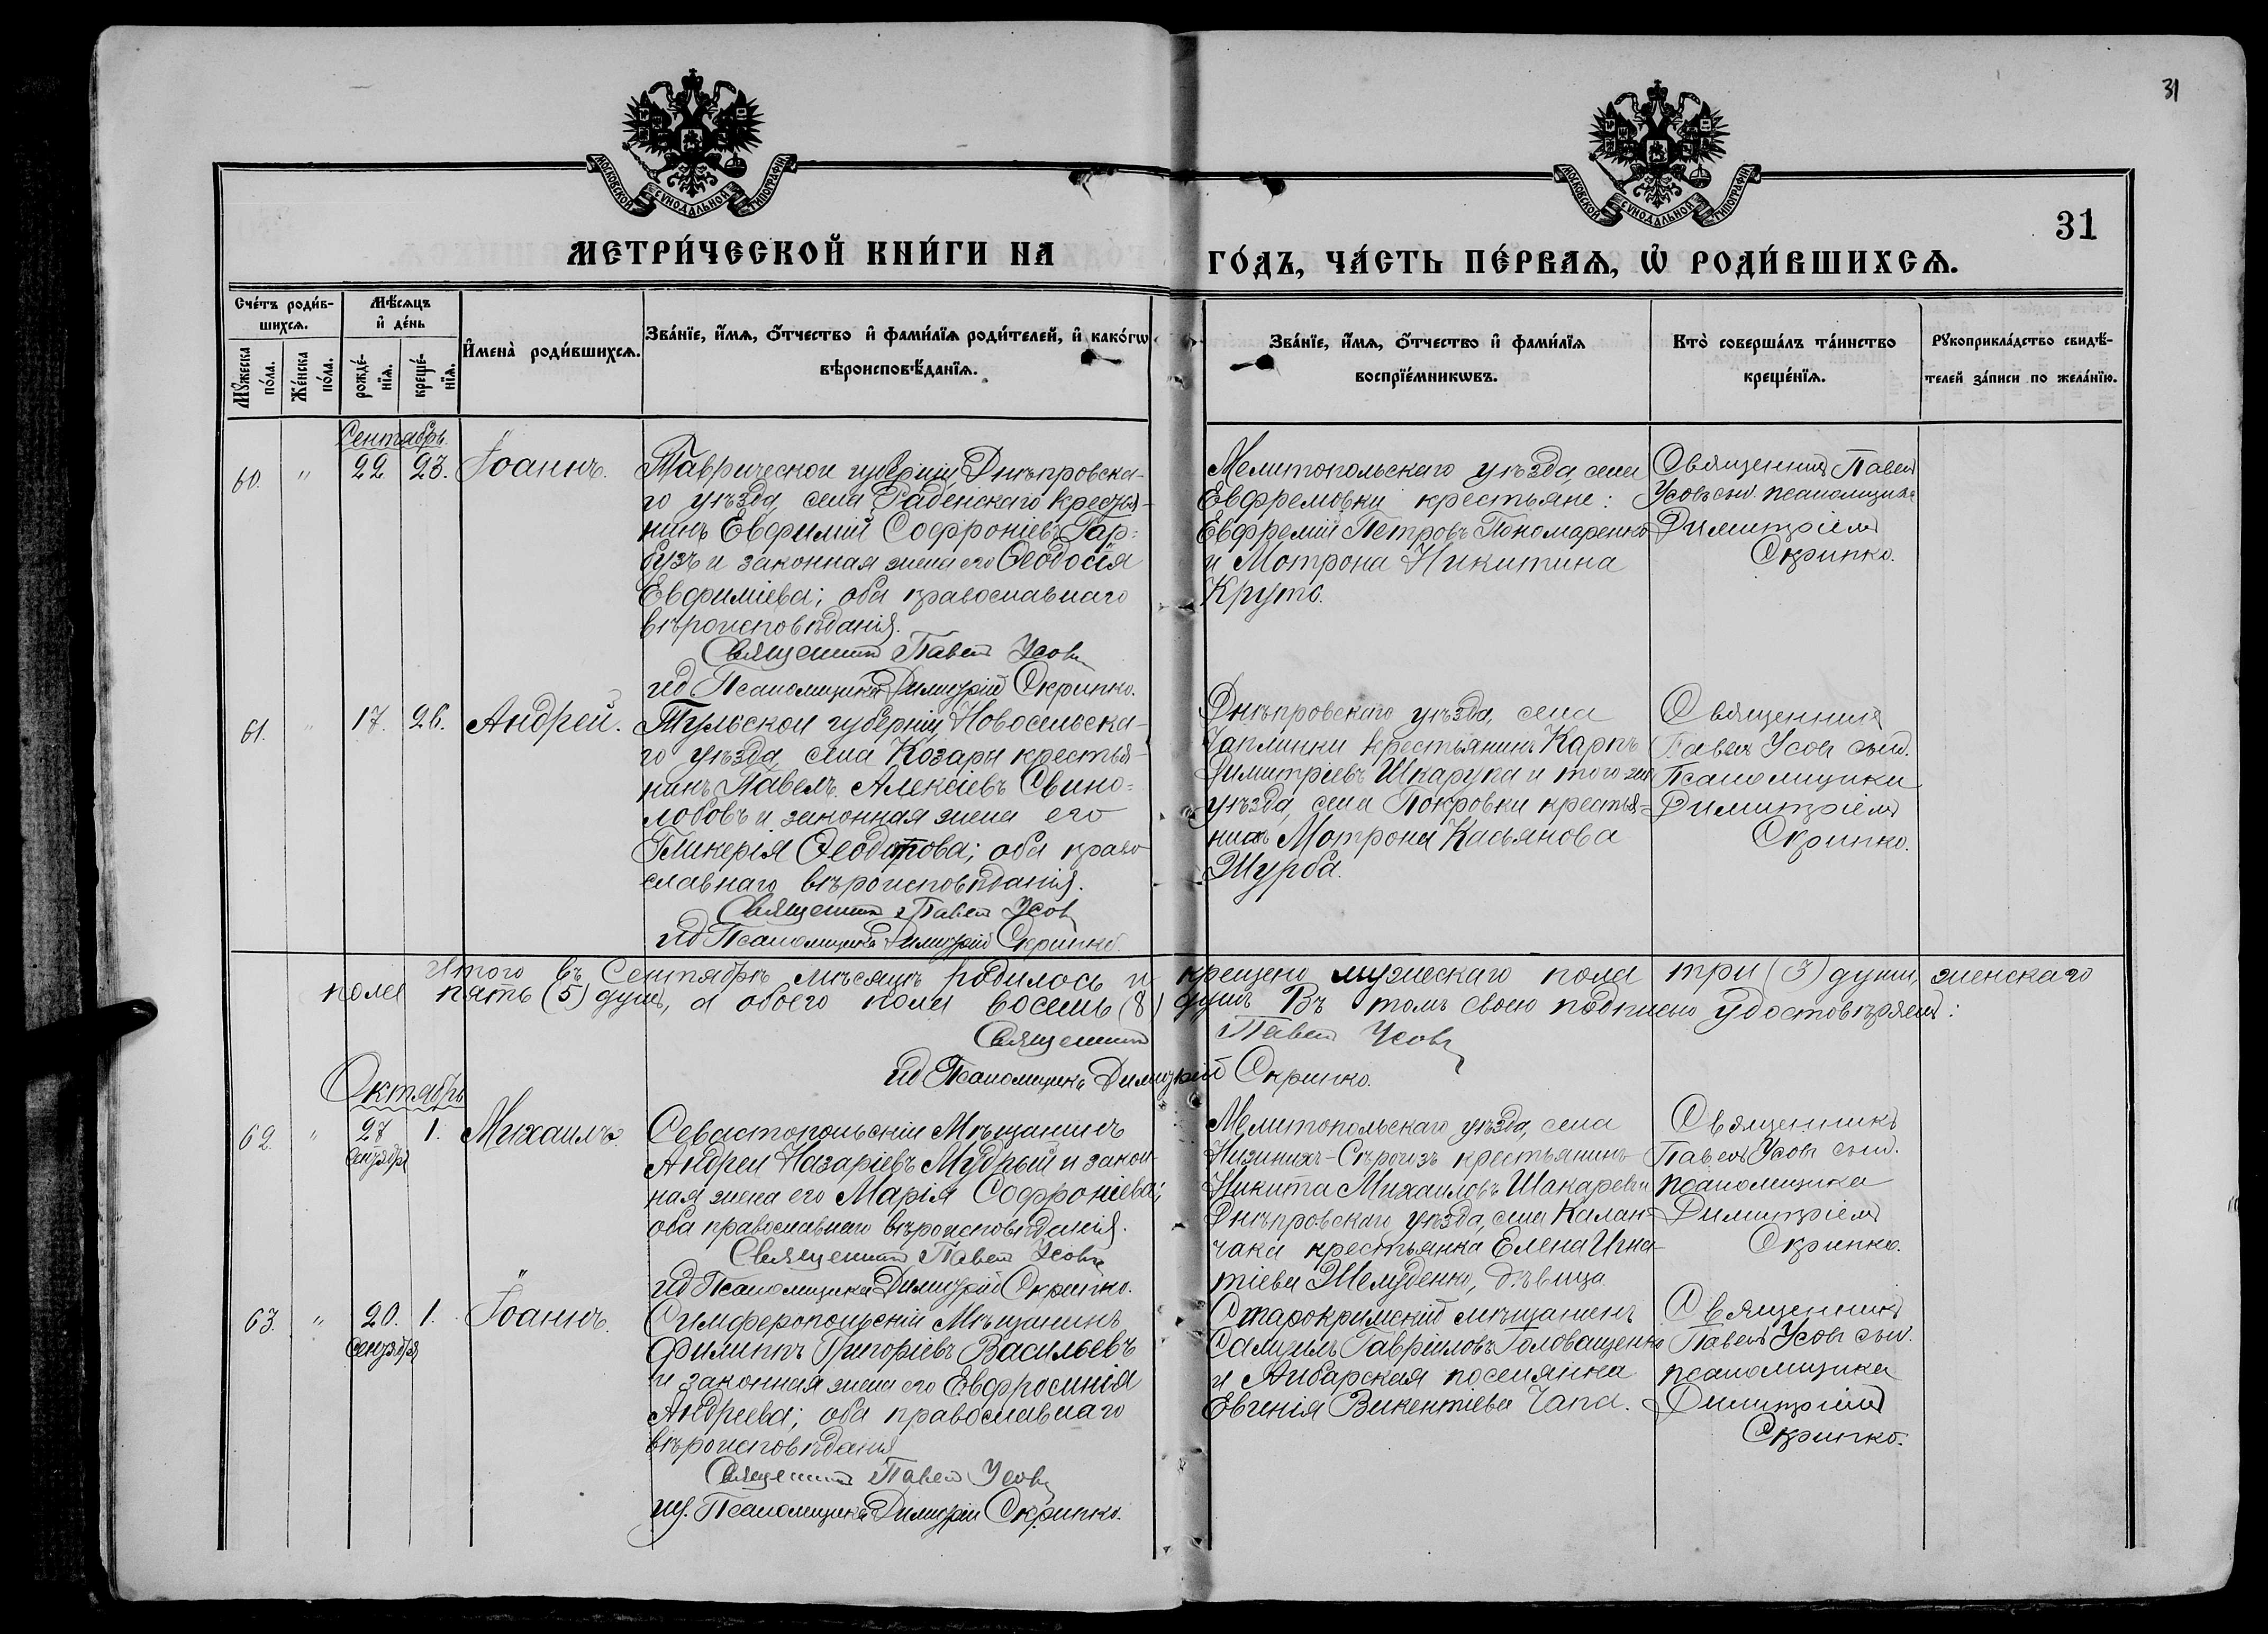 31
МОСКОВСКОЙ СѴНОДАЛЬНОЙ ТИПОГРАФІИ
МОСКОВСКОЙ СѴНОДАЛЬНОЙ ТИПОГРАФІИ
31
МЕТРИ́ЧЕСКОЙ КНИ́ГИ НА
ГО́ДЪ, ЧА́СТЬ ПЕ́РВАѦ, Ѡ҆ РОДИ́ВШИХСѦ.
Сче́тъ роди́в-
шихсѧ.
Мꙋ́жеска
по́ла.
Же́нска
по́ла.
Мѣ́сѧцъ
и҆ де́нь
рожде́-
нїѧ.
креще́-
нїѧ.
И҆мена̀ роди́вшихсѧ.
Зва́нїе, и҆́мѧ, ѻ҆́тчество и҆ фами́лїѧ роди́телей, и҆ како́гѡ
вѣроисповѣ́данїѧ.
Зва́нїе, и҆́мѧ, ѻ҆́тчество и҆ фами́лїѧ
воспрїе́мникѡвъ.
Кто̀ соверша́лъ та́инство
креще́нїѧ.
Рꙋкоприкла́дство свидѣ́-
телей за́писи по жела́нїю.
Сентябрь.
60.
"
22
23.
Іоаннъ.
Таврической губерніи, Днѣпровска-
го уѣзда, села Раденскаго крестья-
нинъ Евфимій Софроніевъ Гар-
бузъ и законная жена его Ѳеодосія
Евфиміева; оба православнаго
вѣроисповѣданія.
Священникъ Павелъ Усовъ
ид Псаломщика Димитрій Скрипко.
Мелитопольскаго уѣзда, села
Евфремовки крестьяне:
Евфремій Петровъ Пономаренко
и Мотрона Никитина
Круто.
Священникъ Павелъ
Усовъ съ ид. псаломщика
Димитріемъ
Скрипко.
61.
"
17.
26.
Андрей.
Тульской губерніи, Новосельска-
го уѣзда, села Козары крестья-
нинъ Павелъ Алексіевъ Свино-
лобовъ и законная жена его
Гликерія Ѳеодотова; оба право
славнаго вѣроисповѣданія.
Священникъ Павелъ Усовъ
ид Псаломщика Димитрій Скрипко.
Днѣпровскаго уѣзда, села
Чаплинки крестьянинъ Карпъ
Димитріевъ Шкарупа и того же
уѣзда, села Покровки крестья-
нинъ Мотрона Касьянова
Журба.
Священникъ
Павелъ Усовъ съ ид.
Псаломщика
Димитріемъ
Скрипко.
Итого въ Сентябрѣ мѣсяцѣ родилось и крещено мужескаго пола три (3) души, женскаго
пола пять (5) душъ, а обоего пола восемь (8) душъ. Въ томъ своею подписью удостовѣряемъ:
Священникъ Павелъ Усовъ
ид Псаломщика Димитрій Скрипко.
Октябрь
62.
"
27
Сентября
1.
Михаилъ.
Севастопольскій Мѣщанинъ
Андрей Назаріевъ Мудрый и закон-
ная жена его Марія Софроніева;
оба православнаго вѣроисповѣданія.
Священникъ Павелъ Усовъ
ид Псаломщика Димитрій Скрипко.
Мелитопольскаго уѣзда, села
Нижнихъ-Сѣрогозъ крестьянинъ
Никита Михаиловъ
Днѣпровскаго уѣзда, села Калан-
чака крестьянка Елена Игна-
тіева Желуденко, дѣвица
Священникъ
Павелъ Усовъ съ ид.
псаломщика
Димитріемъ
Скрипко.
63.
"
20.
Сентября
1.
Іоаннъ.
Симферопольскій Мѣщанинъ
Филиппъ Григоріевъ Васильевъ
и законная жена его Евфросинія
Андреева; оба православнаго
вѣроисповѣданія
Священникъ Павелъ Усовъ
ид. Псаломщика Димитрій Скрипко.
Старокримскій мѣщанинъ
Самуилъ Гавріиловъ Головащенко
и Аибарская поселянка
Евгенія Викентіева Чапа.
Священникъ
Павелъ Усовъ съ ид.
псаломщика
Димитріемъ
Скрипко.